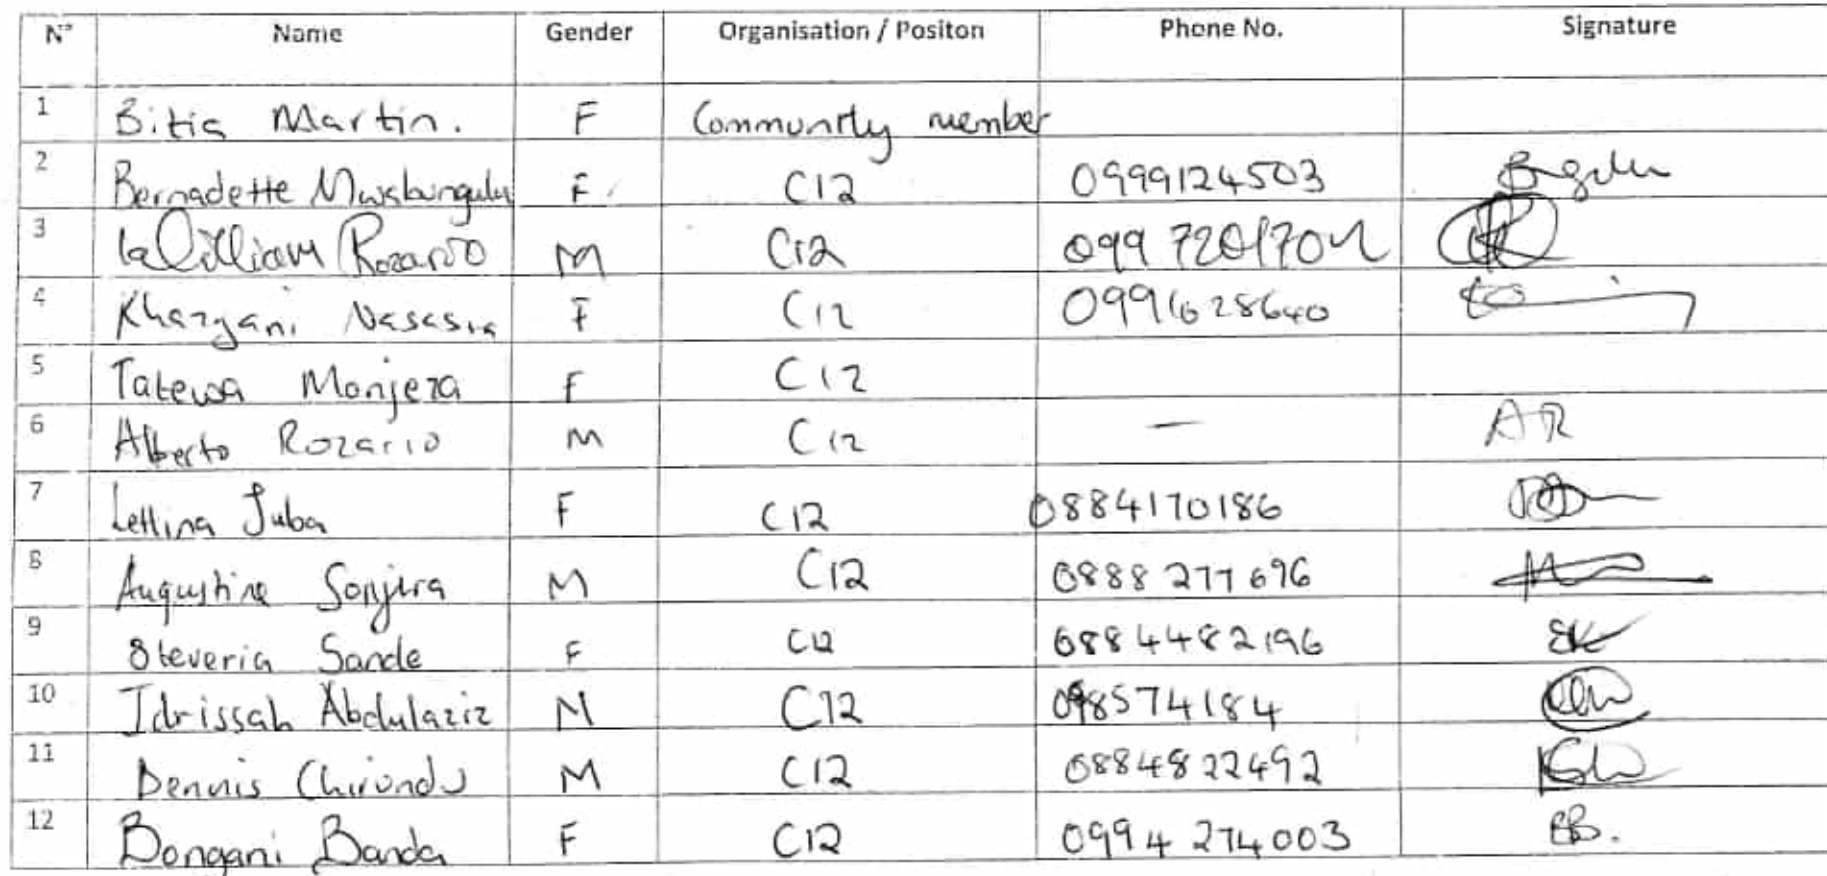 N° Name Gender Organisation / Positon Phone No. Signature
1 Bitia Martin. F Community member
2 Bernadette Mwabungulu F C12 0999124503
3 William Rozario M C12 099
4 F C12 0991628640
5 Tatewa Monjeza F C12
6 Alberto Rozario M C12 — AR
7 Lettina Juba F C12 0884170186
8 Augustine Sonjira M C12 0888 277 696
9 Steveria Sande F C12 0884482196
10 Idrissah Abdulaziz M C12 098574184
11 Dennis Chirondo M C12 0884822492
12 Bongani Banda F C12 0994 274003 BB.